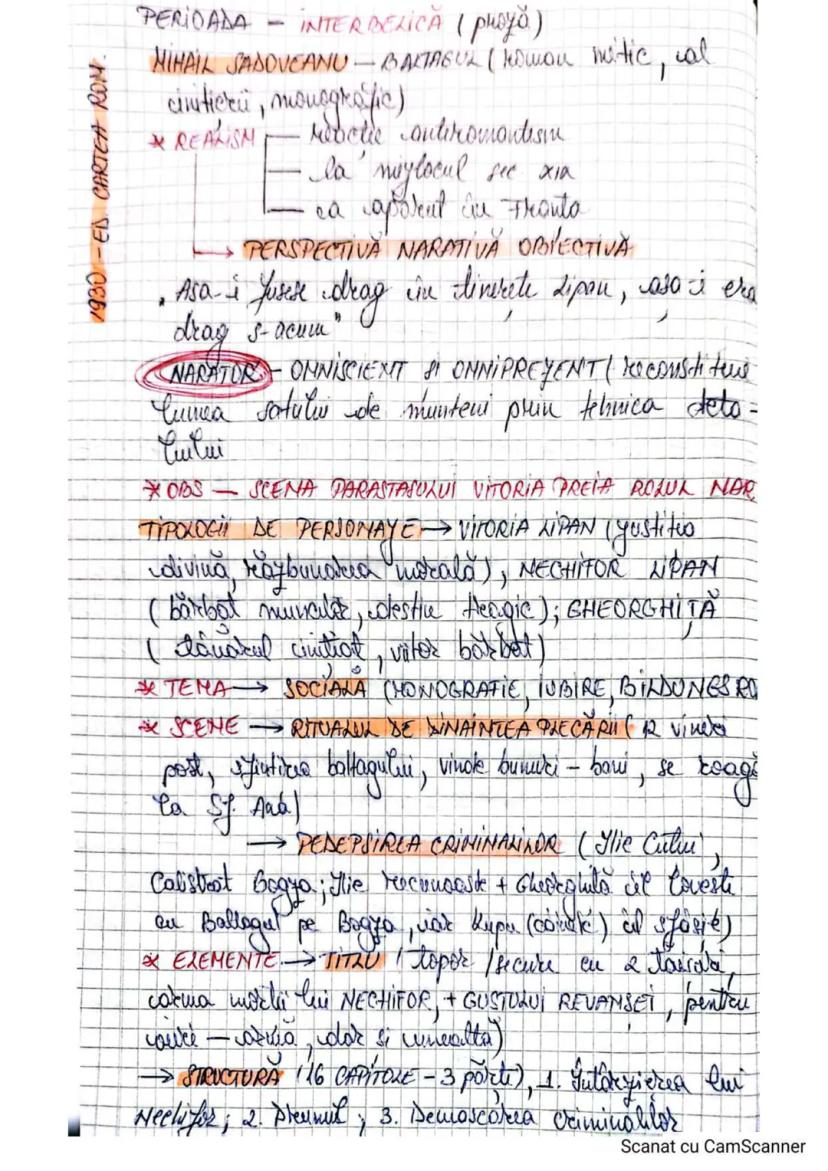 PERIOADA - INTERBELICĂ (proză)
MIHAIL SADOVEANU - BALTAGUL (roman mitic, al
inițierii, monografic)
1930 - ED. CARTEA ROM.
* REALISM - reacție antiromantism
- la mijlocul sec XIX
- a apărut în Franța
→ PERSPECTIVĂ NARATIVĂ OBIECTIVĂ
„Așa-i fusese drag în tinerețe Lipan, așa-i era
drag ș-acum"
NARATOR - OMNISCIENT ȘI OMNIPREZENT (reconstituie
lumea satului de munteni prin tehnica deta=
liului
* OBS - SCENA PARASTASULUI VITORIA PREIA ROLUL NAR
TIPOLOGII DE PERSONAJE → VITORIA LIPAN (justiția
divină, răzbunarea morală), NECHIFOR LIPAN
(bărbat muncitor, destin tragic); GHEORGHIȚĂ
(tânărul inițiat, viitor bărbat)
* TEMA → SOCIALĂ (MONOGRAFIE, IUBIRE, BILDUNGSRO
* SCENE → RITUALUL DE DINAINTEA PLECĂRII (12 vineri
post, sfințirea baltagului, vinde bunuri - bani, se roagă
la Sf. Ana)
→ PEDEPSIREA CRIMINALILOR (Ilie Cuțui,
Calistrat Bogza; Ilie recunoaște + Gheorghiță îl lovește
cu Baltagul pe Bogza, iar Lupu (câinele) îl sfâșie)
* ELEMENTE → TITLU (topor / secure cu 2 tăișuri,
arma morții lui NECHIFOR, + GUSTULUI REVANȘEI, pentru
- armă, dar și unealtă)
→ STRUCTURĂ (16 CAPITOLE - 3 părți), 1. Întârzierea lui
Nechifor; 2. Drumul; 3. Demascarea criminalilor
Scanat cu CamScanner